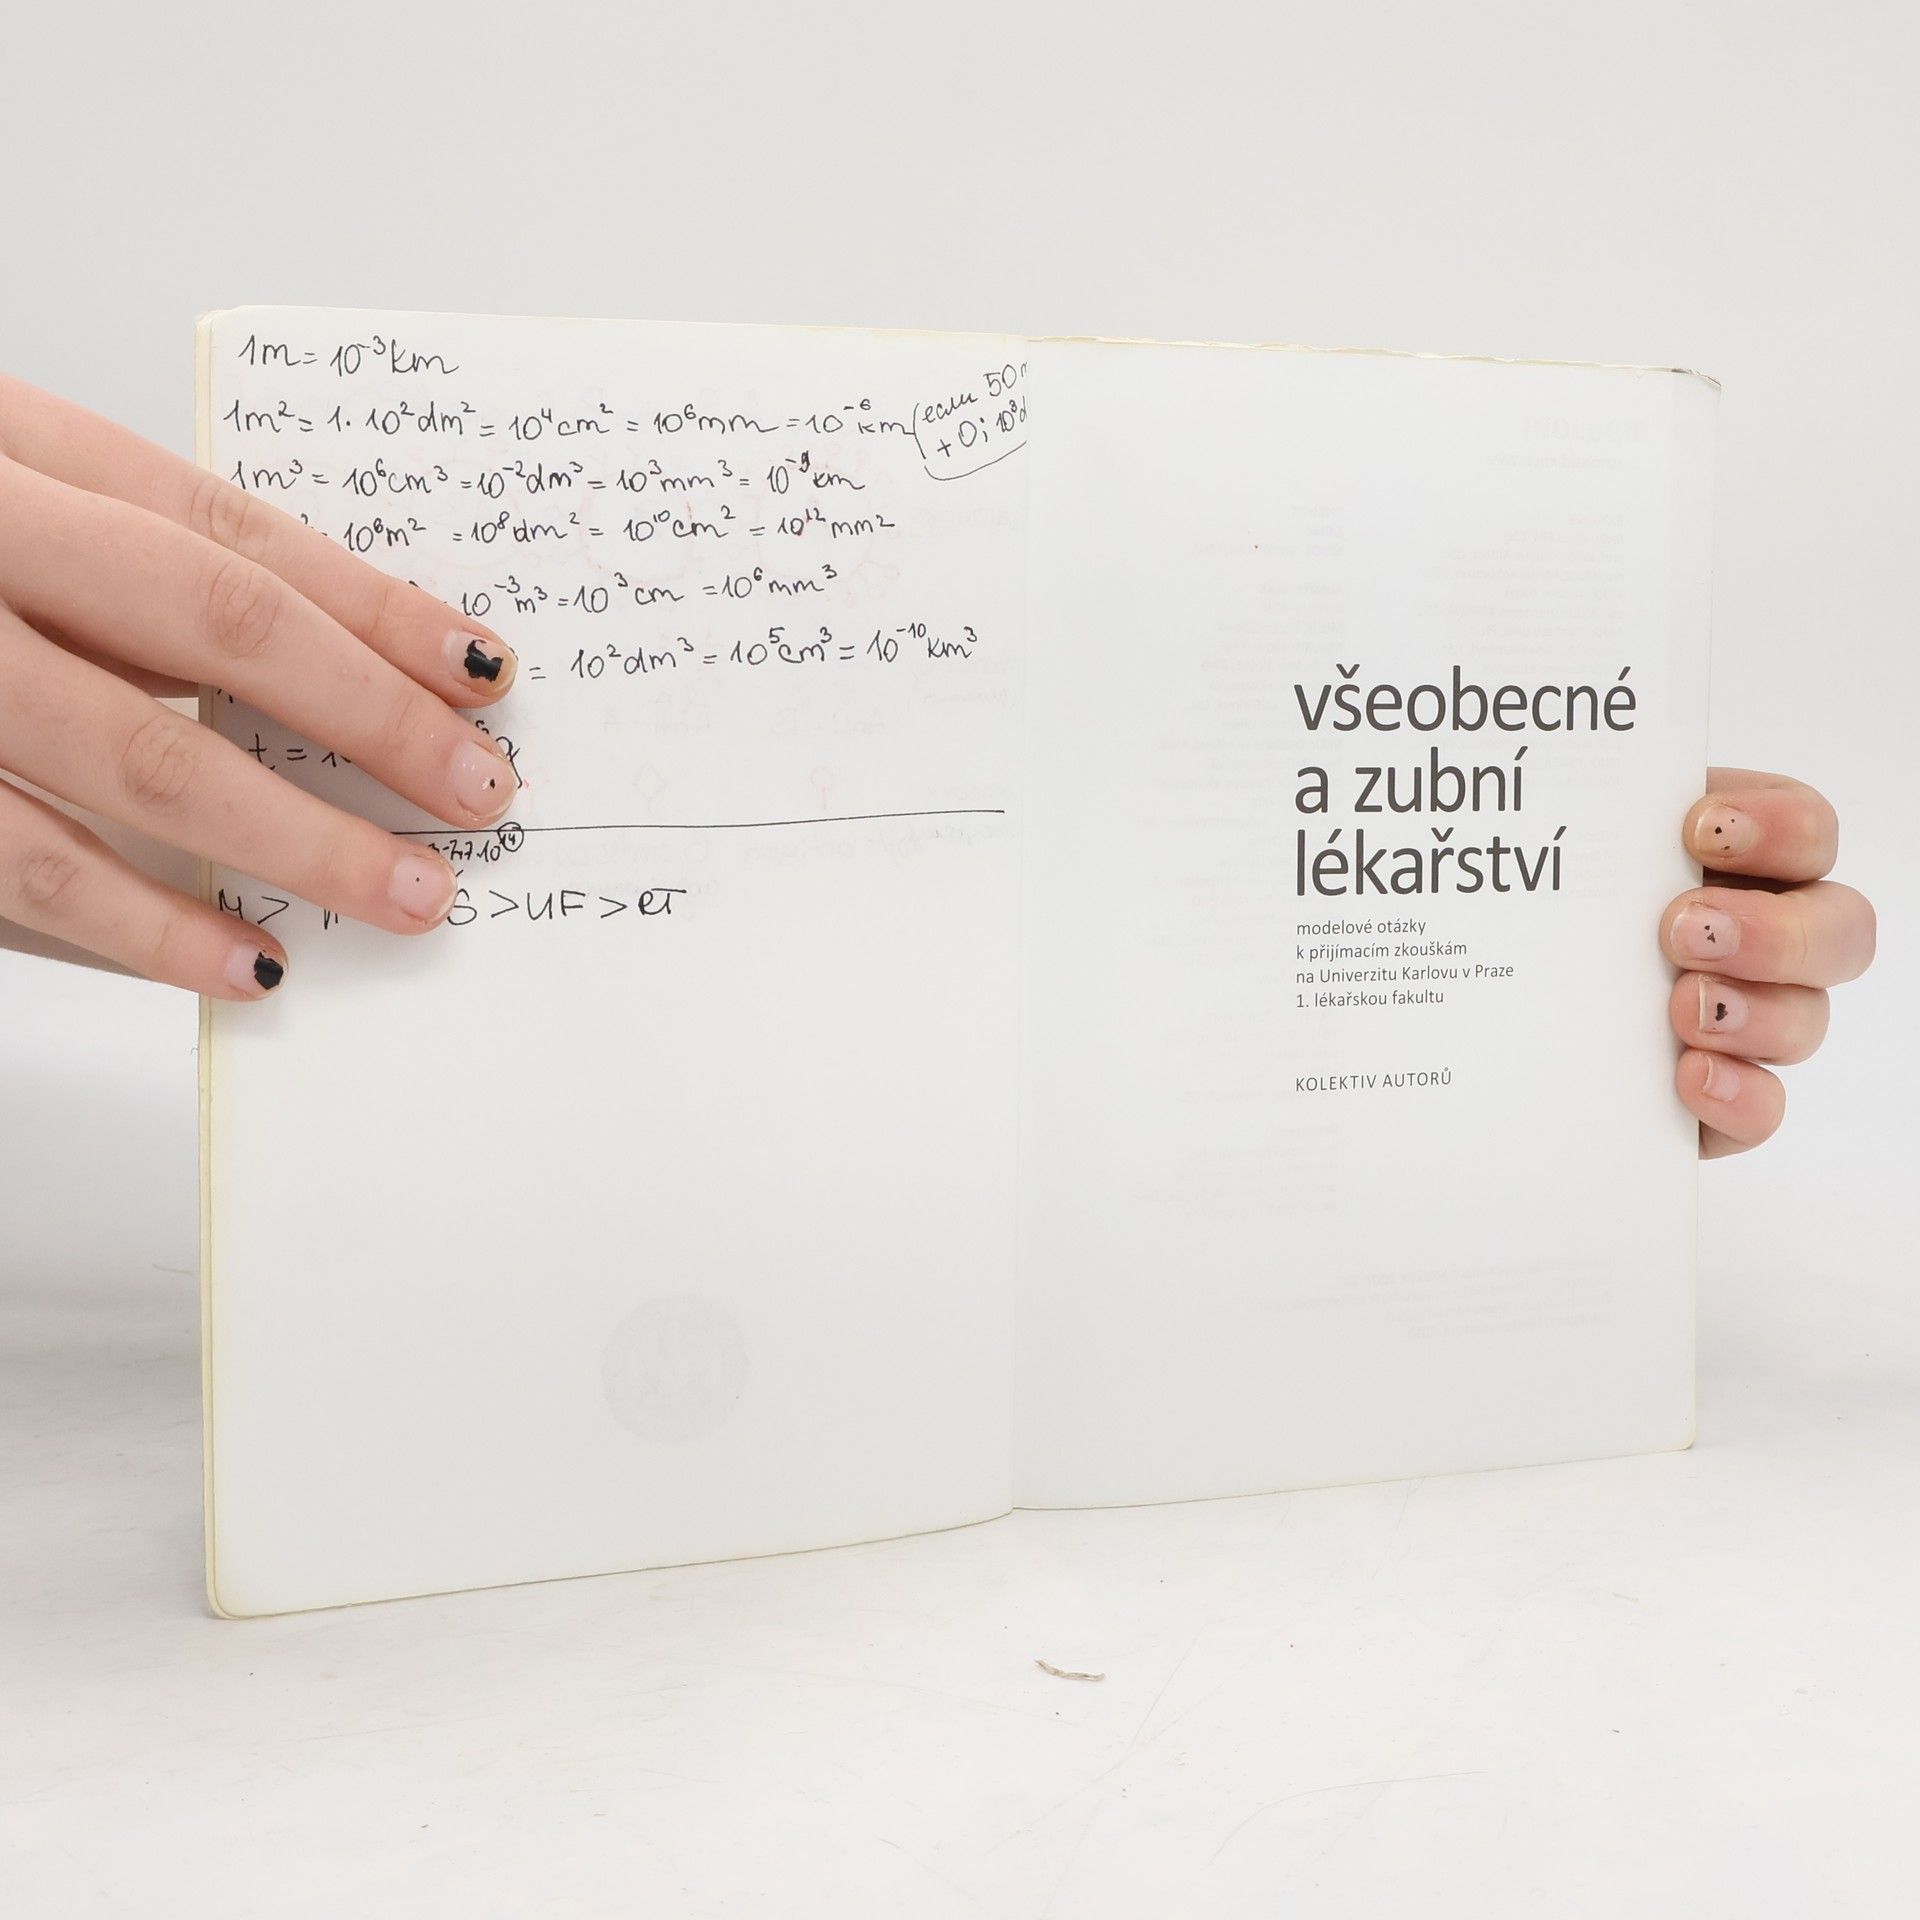 1m = 10⁻³km
1m² = 1. 10²dm² = 10⁴cm² = 10⁶mm = 10⁻⁶km (если 50
+0; 10³d
1m³ = 10⁶cm³ = 10⁻²dm³ = 10³mm³ = 10⁻⁹km
= 10⁶m² = 10⁸dm² = 10¹⁰cm² = 10¹²mm²
10⁻³m³ = 10³cm = 10⁶mm³
= 10²dm³ = 10⁵cm³ = 10⁻¹⁰km³
t = 1
3-7,7.10¹⁴
M > S > UF > RT
všeobecné
a zubní
lékařství
modelové otázky
k přijímacím zkouškám
na Univerzitu Karlovu v Praze
1. lékařskou fakultu
KOLEKTIV AUTORŮ